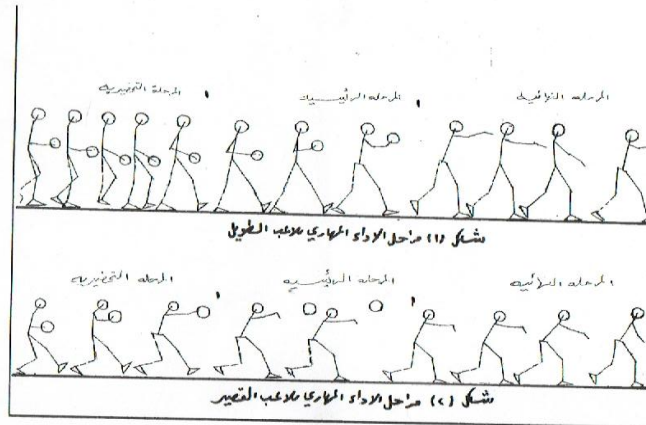 المرحلة التحضيرية المرحلة الرئيسية المرحلة النهائية
شكل (١) مراحل الاداء المهاري للاعب الطويل
المرحلة التحضيرية المرحلة الرئيسية المرحلة النهائية
شكل (٢) مراحل الاداء المهاري للاعب القصير